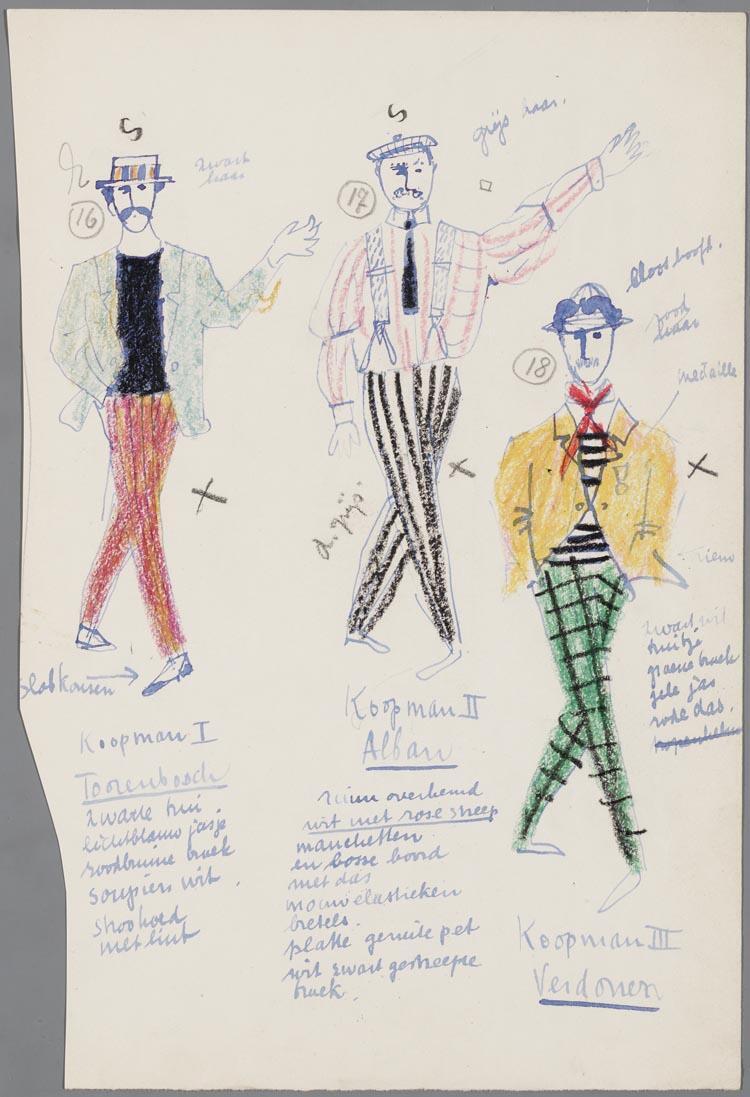 S
16
zwart
haar
slobkousen
Koopman I
Toorenbosch
zwarte trui.
lichtblauw jasje
roodbruine broek
soupiers wit.
stroohoed
met lint
S
17
grijs haar.
d. grijs.
Koopman II
Alban
ruim overhemd
wit met rose streep
manchetten
en losse boord
met das
mouwelastieken
bretels.
platte geruite pet
wit zwart gestreepte
broek.
18
bloot hoofd.
rood
haar
medaille
riem
zwart wit
truitje
groene broek
gele jas
rode das.
Koopman III
Verdonen